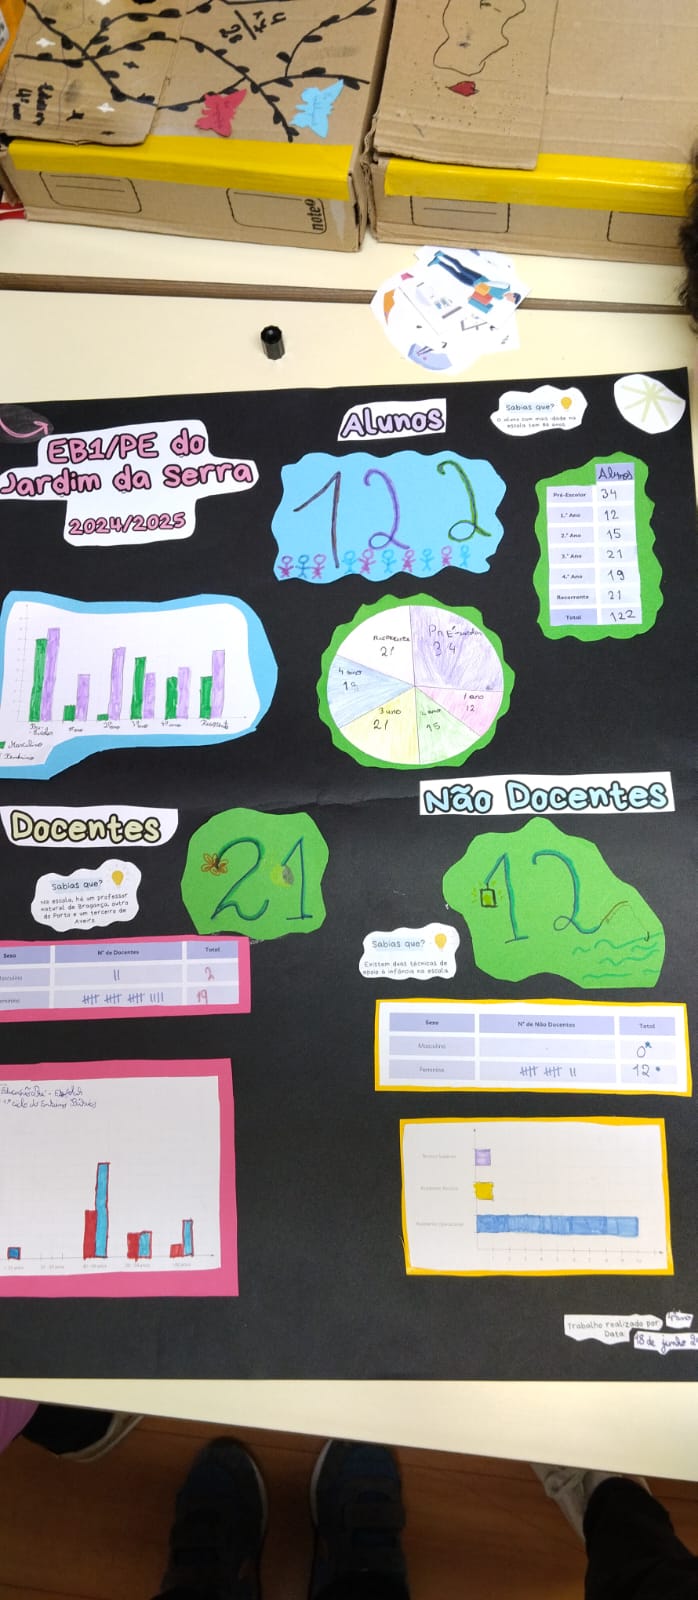 note!
EB1/PE do
Jardim da Serra
2024/2025
Alunos
122
Sabias que?
O aluno com mais idade na
escola tem 86 anos.
Alunos
Pré-Escolar 34
1.º Ano 12
2.º Ano 15
3.º Ano 21
4.º Ano 19
Recorrente 21
Total 122
Masculino
Feminino
Recorrente
21
Pré-escolar
34
4 ano
19
1 ano
12
3 ano
21
2 ano
15
Docentes
21
Sabias que?
Na escola, há um professor
natural de Bragança, outro
do Porto e um terceiro de
Aveiro.
Sexo Nº de Docentes Total
Masculino 2
Feminino 19
Não Docentes
12
Sabias que?
Existem duas técnicas de
apoio à infância na escola.
Sexo Nº de Não Docentes Total
Masculino 0
Feminino 12
1º Ciclo do Ensino Básico
Técnico Superior
Assistente Técnico
Assistente Operacional
Trabalho realizado por: 4ºano
Data: 18 de junho